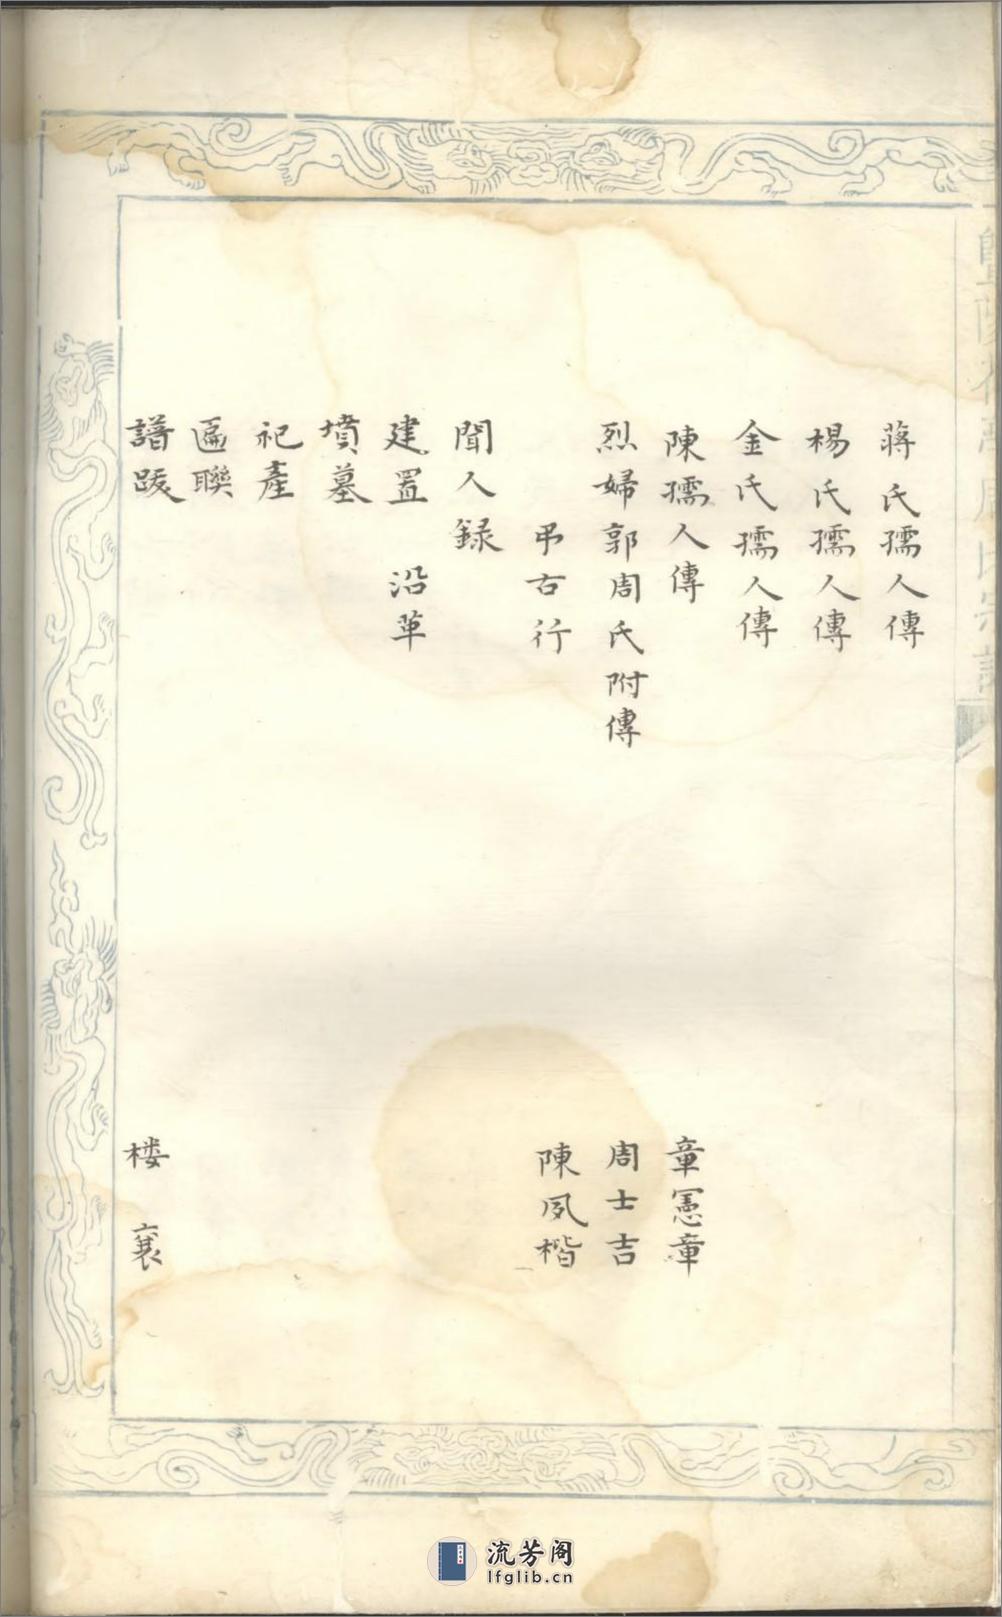 蔣氏孺人傳
楊氏孺人傳
金氏孺人傳
陳孺人傳 章憲章
烈婦郭周氏附傳 周士吉
弔古行 陳夙楷
聞人録
建置 沿革
墳墓
祀產
匾聯
譜跋 楼襄
流芳阁
lfglib.cn